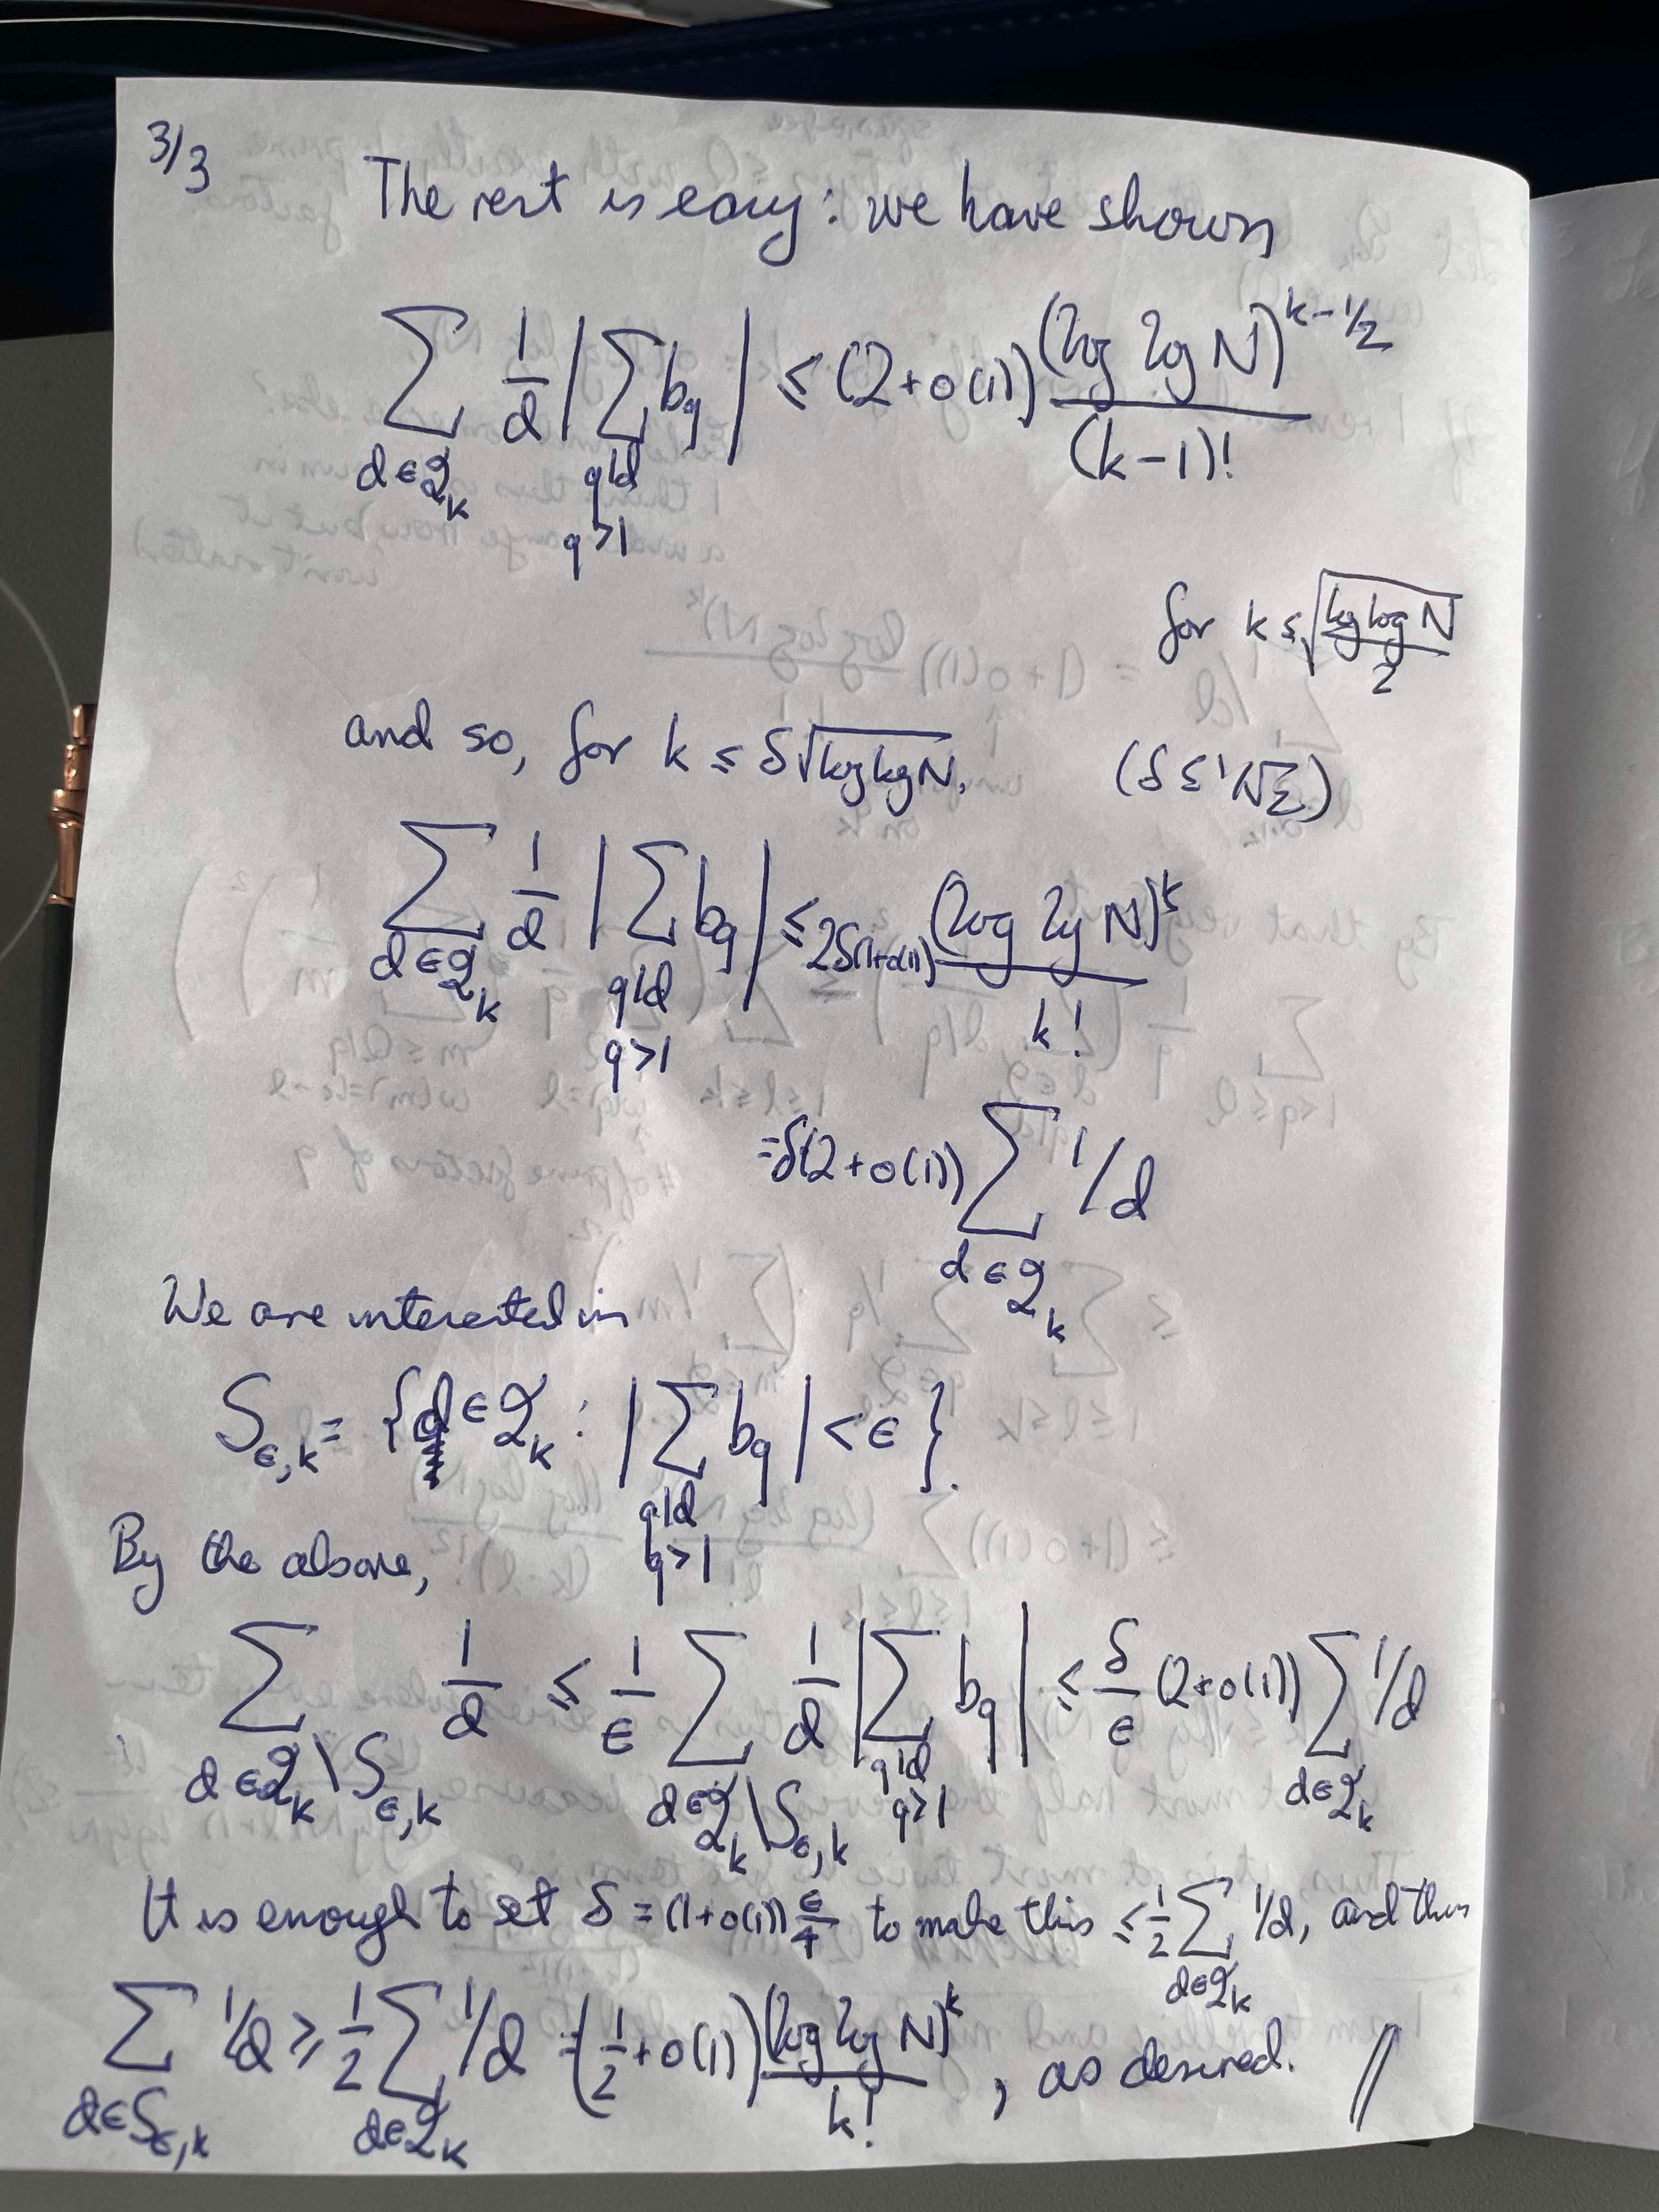 3/3
The rest is easy: we have shown
∑_{d∈𝒬_k} 1/d |∑_{q|d, q>1} b_q| ≤ (2+o(1)) (log log N)^{k-1/2} / (k-1)!
for k ≤ √(log log N / 2)
and so, for k ≤ δ√(log log N), (δ ≤ 1/√2)
∑_{d∈𝒬_k} 1/d |∑_{q|d, q>1} b_q| ≤ 2δ(1+o(1)) (log log N)^k / k!
= δ(2+o(1)) ∑_{d∈𝒬_k} 1/d
We are interested in
S_{ε,k} = {d∈𝒬_k : |∑_{q|d, q>1} b_q| < ε}.
By the above,
∑_{d∈𝒬_k\S_{ε,k}} 1/d ≤ 1/ε ∑_{d∈𝒬_k\S_{ε,k}} 1/d |∑_{q|d, q>1} b_q| ≤ δ/ε (2+o(1)) ∑_{d∈𝒬_k} 1/d
It is enough to set δ = (1+o(1)) ε/4 to make this ≤ 1/2 ∑_{d∈𝒬_k} 1/d, and thus
∑_{d∈S_{ε,k}} 1/d ≥ 1/2 ∑_{d∈𝒬_k} 1/d = (1/2+o(1)) (log log N)^k / k!, as desired. //